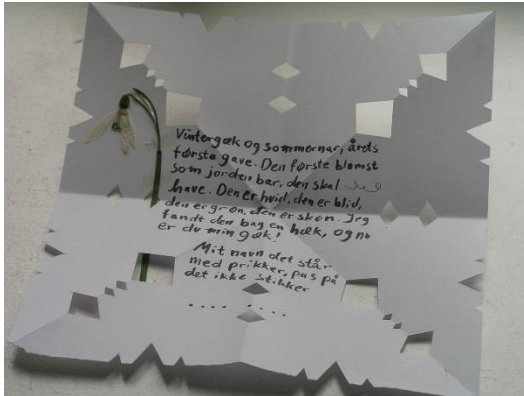 Vintergæk og sommernar, årets
første gave. Den første blomst
som jorden bar, den skal
have. Den er hvid, den er blid,
den er grøn, den er skøn. Jeg
fandt den bag en hæk, og nu
er du min gæk!
Mit navn det står
med prikker, pas på
det ikke stikker
.... ....